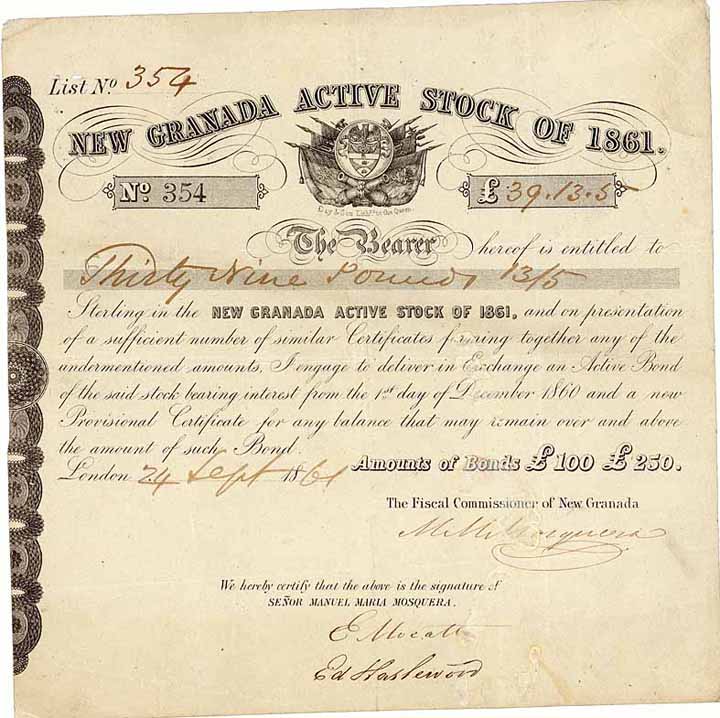 List No 354
NEW GRANADA ACTIVE STOCK OF 1861.
No 354
£ 39.13.5
Day & Son Lithrs to the Queen
The Bearer hereof is entitled to
Thirty Nine Pounds 13/5
Sterling in the NEW GRANADA ACTIVE STOCK OF 1861, and on presentation
of a sufficient number of similar Certificates forming together any of the
undermentioned amounts, I engage to deliver in Exchange an Active Bond
of the said stock bearing interest from the 1st day of December 1860 and a new
Provisional Certificate for any balance that may remain over and above
the amount of such Bond.
London 24 Sept 1861
Amounts of Bonds £100 £250.
The Fiscal Commissioner of New Granada
M. M. Mosquera
We hereby certify that the above is the signature of
SEÑOR MANUEL MARIA MOSQUERA.
E Mocatta
Ed Haslewood